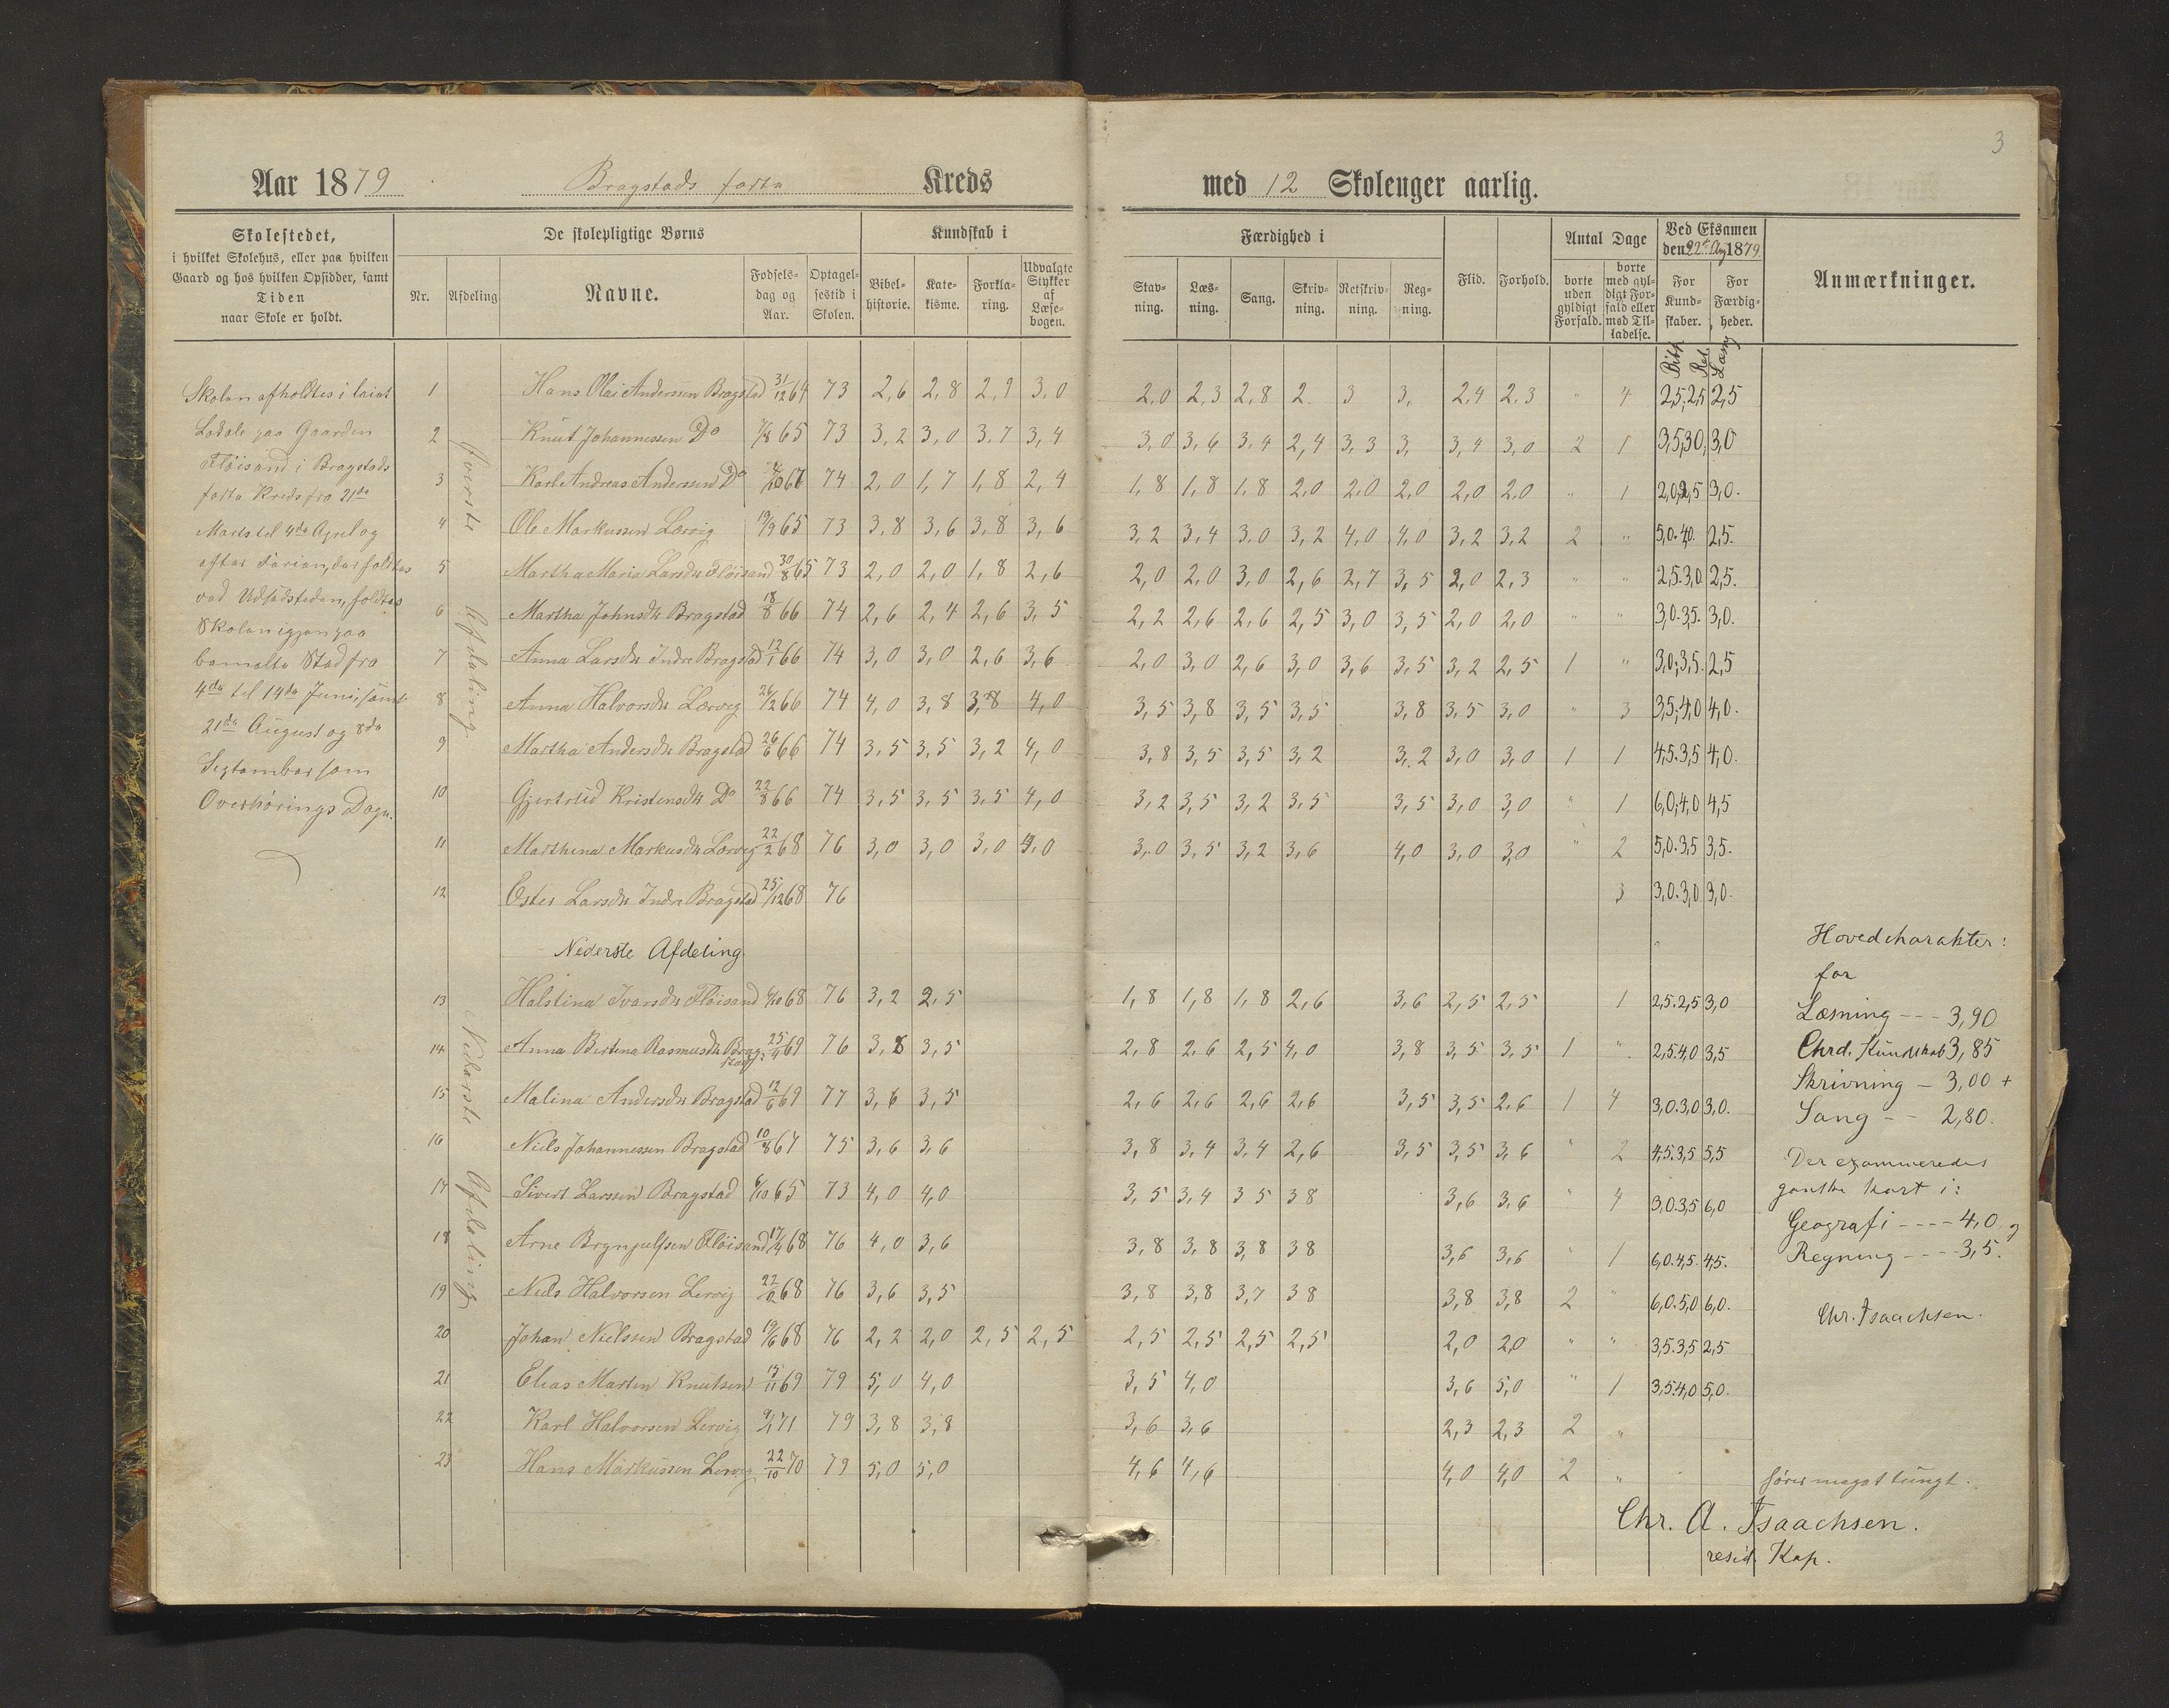 3
Aar 1879 Bragstads faste Kreds med 12 Skoleuger aarlig.
Skolestedet,
i hvilket Skolehus, eller paa hvilken
Gaard og hos hvilken Opsidder, samt
Tiden
naar Skole er holdt.
Nr. Afdeling
De skolepligtige Børns
Navne. Fødselsdag og Aar. Optagelsestid i Skolen.
Kundskab i
Bibelhistorie. Katekisme. Forklaring. Udvalgte Stykker af Læsebogen.
Færdighed i
Stavning. Læsning. Sang. Skrivning. Retskrivning. Regning.
Flid. Forhold.
Antal Dage
borte uden gyldigt Forfald. borte med gyldigt Forfald eller med Tilladelse.
Ved Eksamen
den 22de Aug 1879
For Kundskaber. For Færdigheder.
Anmærkninger.
Skolen afholdtes i leiet
Lokale paa Gaarden
Fløisand i Bragstads
faste Kreds fra 21de
Marts til 4de April og
efter Ferien, der holdtes
ved Udsædstiden, holdtes
Skolen igjen paa
bemeldte Sted fra
4de til 14de Juni, samt
21de August og 8de
September som
Overhørings Dage.
Øverste Afdeling
1 Hans Olai Anderssen Bragstad 31/12 64 73 2,6 2,8 2,9 3,0 2,0 2,3 2,8 2. 3 3, 2,4 2,3 " 4 2,5. 2,5 2,5
2 Knut Johannessen Do 7/8 65 73 3,2 3,0 3,7 3,4 3,0 3,6 3,4 2,4 3,3 3, 3,4 3,0 2 1 3,5 3,0, 3,0
3 Karl Andreas Anderssen Do 74 2,0 1,7 1,8 2,4 1,8 1,8 1,8 2,0 2,0 2,0 2,0 2,0 " 1 2,0 2,5 3,0.
4 Ole Markussen Lærvig 19/9 65 73 3,8 3,6 3,8 3,6 3,2 3,4 3,0 3,2 4,0 4,0 3,2 3,2 2 " 5,0. 4,0. 2,5.
5 Martha Maria Larsdtr Fløisand 30/8 65 73 2,0 2,0 1,8 2,6 2,0 2,0 3,0 2,6 2,7 3,5 2,0 2,3 " " 2,5. 3,0 2,5.
6 Martha Johnsdtr Bragstad 18/8 66 74 2,6 2,4 2,6 3,5 2,2 2,6 2,6 2,5 3,0 3,5 2,0 2,0 " " 3,0. 3,5. 3,0.
7 Anna Larsdtr Indre Bragstad 12/1 66 74 3,0 3,0 2,6 3,6 2,0 3,0 2,6 3,0 3,6 3,5 3,2 2,5 1 " 3,0, 3,5. 2,5
8 Anna Halvorsdtr Lærvig 26/2 66 74 4,0 3,8 3,8 4,0 3,5 3,8 3,5 3,5 3,8 3,5 3,0 " 3 3,5, 4,0 4,0.
9 Martha Andersdtr Bragstad 26/6 66 74 3,5 3,5 3,2 4,0 3,8 3,5 3,5 3,2 3,2 3,0 3,0 1 1 4,5. 3,5 4,0.
10 Gjertrud Kristensdtr Do 22/8 66 74 3,5 3,5 3,5 4,0 3,2 3,5 3,2 3,5 3,5 3,0 3,0 " 1 6,0, 4,0 4,5
11 Marthina Markusdtr Lærvig 22/2 68 76 3,0 3,0 3,0 4,0 3,0 3,5 3,2 3,6 4,0 3,0 3,0 " 2 5,0. 3,5 3,5.
12 Ester Larsdtr Indre Bragstad 25/12 68 76 3 3,0. 3,0 3,0.
Nederste Afdeling
Nederste Afdeling
13 Halstina Ivarsdtr Fløisand 6/10 68 76 3,2 2,5 1,8 1,8 1,8 2,6 3,6 2,5 2,5 1 2,5. 2,5 3,0
14 Anna Bertina Rasmusdtr Brag. 25/4 69 76 3,8 3,5 2,8 2,6 2,5 4,0 3,8 3,5 3,5 1 " 2,5. 4,0 3,5
15 Malina Andersdtr Bragstad 12/6 69 77 3,6 3,5 2,6 2,6 2,6 2,6 3,5 3,5 2,6 1 4 3,0. 3,0 3,0.
16 Niels Johannessen Bragstad 10/8 67 75 3,6 3,6 3,8 3,4 3,4 2,6 3,5 3,5 3,6 " 2 4,5. 3,5 5,5
17 Sivert Larssen Bragstad 6/10 65 73 4,0 4,0 3,5 3,4 3 5 3 8 3,6 3,6 " 4 3,0. 3,5 6,0
18 Arne Brynjulfsen Fløisand 17/4 68 76 4,0 3,6 3,8 3,8 3,8 3 8 3,6 3,6 " 1 6,0. 4,5. 4,5.
19 Niels Halvorsen Lervig 76 3,6 3,5 3,8 3,8 3,7 3 8 3,8 3,8 2 " 6,0. 5,0 6,0.
20 Johan Nielssen Bragstad 19/6 68 76 2,2 2,0 2,5 2,5 2,5 2,5 2,5 2,5 2,0 2,0 " " 3,5. 3,5 2,5
21 Elias Martin Knutsen 15/11 69 79 5,0 4,0 3,5 4,0 3,6 5,0 " 1 3,5. 4,0 5,0.
22 Karl Halvorsen Lervig 9/1 71 79 3,8 3,8 3,6 3,6 2,3 2,3 2 "
23 Hans Markussen Lervig 22/10 70 79 5,0 5,0 4,6 4,6 4,0 4,0 2 " hører meget tungt.
Hovedcharakter:
for
Læsning --- 3,90
Chrd. Kundskab 3,85
Skrivning - 3,00 +
Sang -- 2,80.
Der examineredes
ganske kort i:
Geografi ---- 4,0 og
Regning ---- 3,5.
Chr. Isaachsen.
Chr. A. Isaachsen.
resid. Kap.